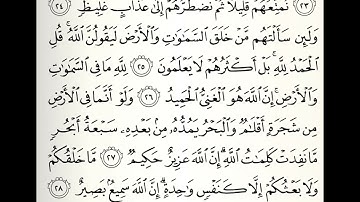 ٢٣ نُمَتِّعُهُمْ قَلِيلًا ثُمَّ نَضْطَرُّهُمْ إِلَىٰ عَذَابٍ غَلِيظٍ ٢٤
وَلَئِن سَأَلْتَهُم مَّنْ خَلَقَ السَّمَٰوَٰتِ وَالْأَرْضَ لَيَقُولُنَّ اللَّهُ ۚ قُلِ
الْحَمْدُ لِلَّهِ ۚ بَلْ أَكْثَرُهُمْ لَا يَعْلَمُونَ ٢٥ لِلَّهِ مَا فِي السَّمَٰوَٰتِ
وَالْأَرْضِ ۚ إِنَّ اللَّهَ هُوَ الْغَنِيُّ الْحَمِيدُ ٢٦ وَلَوْ أَنَّمَا فِي الْأَرْضِ
مِن شَجَرَةٍ أَقْلَٰمٌ وَالْبَحْرُ يَمُدُّهُ مِن بَعْدِهِ سَبْعَةُ أَبْحُرٍ
مَّا نَفِدَتْ كَلِمَٰتُ اللَّهِ ۗ إِنَّ اللَّهَ عَزِيزٌ حَكِيمٌ ٢٧ مَّا خَلْقُكُمْ
وَلَا بَعْثُكُمْ إِلَّا كَنَفْسٍ وَٰحِدَةٍ ۗ إِنَّ اللَّهَ سَمِيعٌ بَصِيرٌ ٢٨